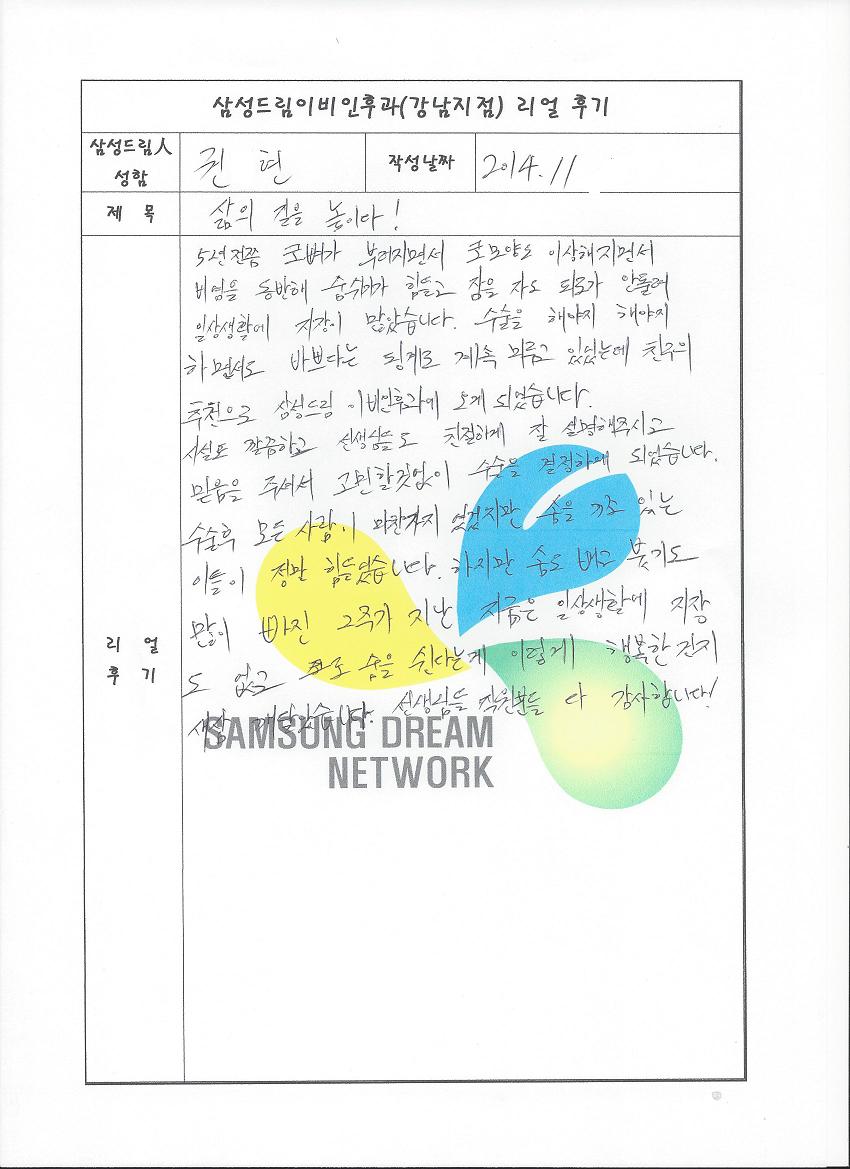 삼성드림이비인후과(강남지점) 리얼 후기
삼성드림人 성함 권 현 작성날짜 2014.11
제 목 삶의 질을 높이다!
리 얼 후 기
5년전쯤 코뼈가 부러지면서 코모양도 이상해지면서
비염을 동반해 숨쉬기가 힘들고 잠을 자도 피로가 안풀려
일상생활에 지장이 많았습니다. 수술을 해야지 해야지
하면서도 바쁘다는 핑계로 계속 미루고 있었는데 친구의
추천으로 삼성드림 이비인후과에 오게 되었습니다.
시설도 깔끔하고 선생님들도 친절하게 잘 설명해주시고
믿음을 주셔서 고민할것없이 수술을 결정하게 되었습니다.
수술후 모든 사람이 마찬가지 였겠지만 솜을 끼고 있는
이틀이 정말 힘들었습니다. 하지만 솜도 빼고 붓기도
많이 빠진 2주가 지난 지금은 일상생활에 지장
도 없고 코로 숨을 쉰다는게 이렇게 행복한건지
새삼 깨달았습니다. 선생님들 직원분들 다 감사합니다!
SAMSUNG DREAM
NETWORK